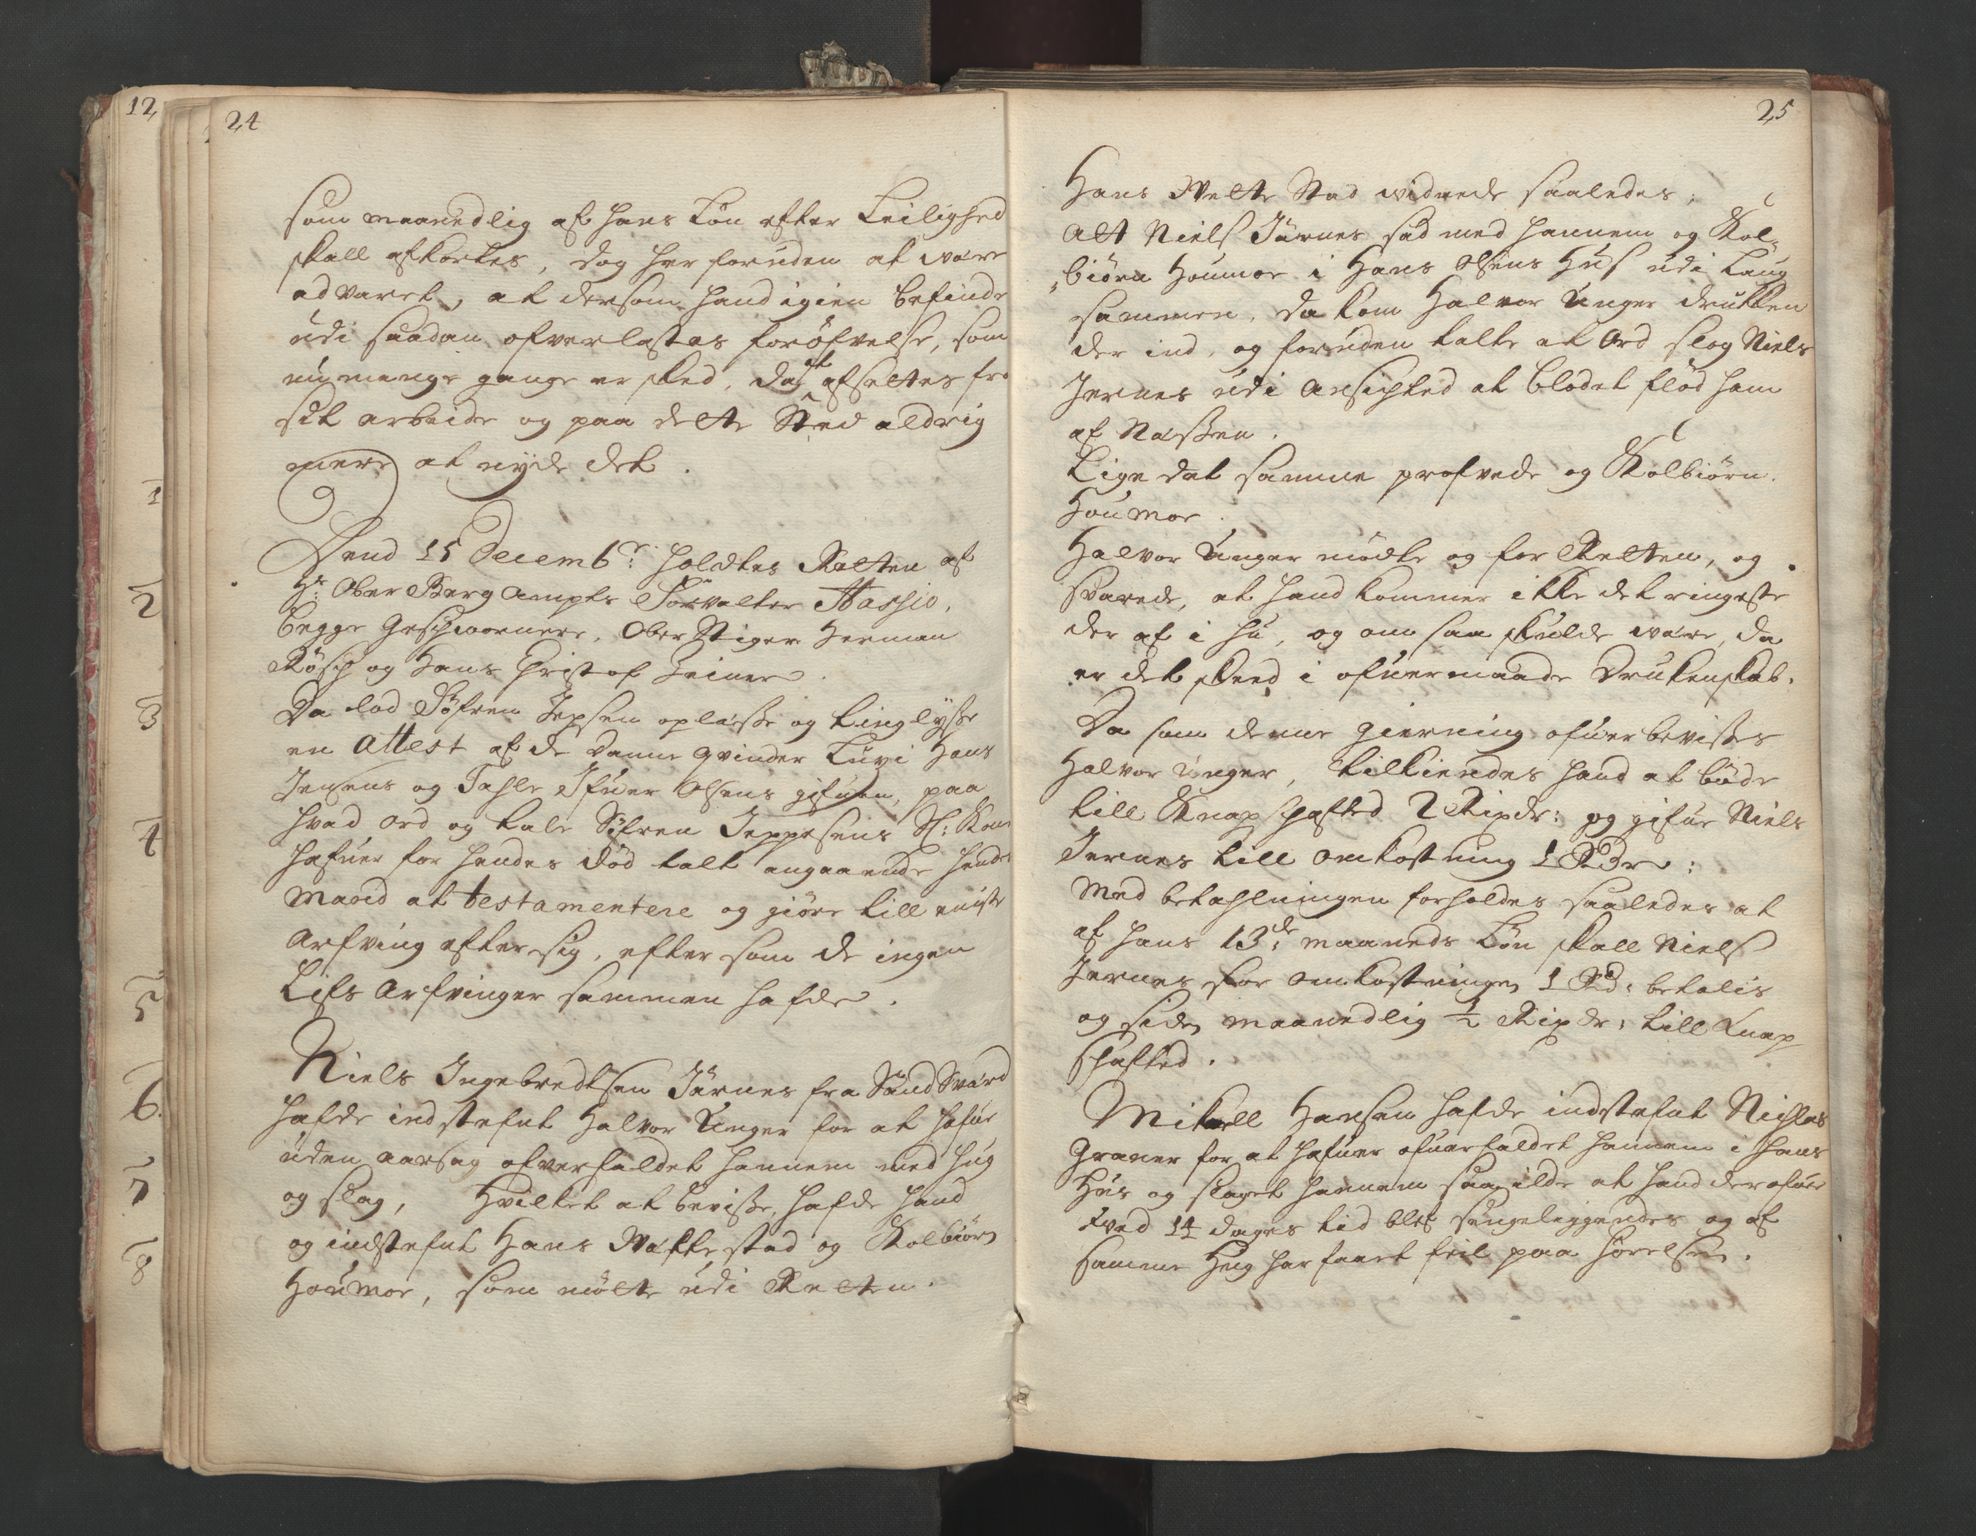 12
1
2
3
4
5
6.
7
8
24
som maanedlig af hans Løn efter Leilighed
skall afkortes, dog her foruden at være
advaret, at dersom hand igien befinde
udi saadan ofverlastes forøfvelse, som
nu mange gange er sked, da at afsettes fra
sit arbeide og paa dette Sted aldrig
mere at nyde det.
Dend 15 Decembr: holdtes Retten af
Hr. Ober Berg Ampts Forvalter Hassio,
begge Geschwornere, Ober Stiger Herman
Rösch og Hans Christof
Da lod Søfren Jepsen oplæsse og tinglysse
en Attest af de Danne qvinder Luvi Hans
Jensens og Tahle Ifuer Olsens gifuen, paa
hvad ord og tale Søfren Jeppesens Sl: Kone
hafuer for hendes død talt angaaende hendes
Mand at testamentere og giøre till eniste
Arfving efter sig, eftersom de ingen
Lifs Arfvinger sammen hafde.
Niels Ingebredtsen Järnes fra Sand Sværd
hafde indstefnt Halvor Unger for at hafue
uden aarsag ofverfaldet hannem med hug
og slag, Hvilket at bevisse, hafde hand
og indstefnt Hans Wette stad og Kolbiørn
Houmoe, som møtte udi Retten.
25
Hans Wette Stad vidnede saaledes,
Att Niels Järnes sad med hannem og Kol-
biørn Houmoe i Hans Olsens Hus udi Laug
sammen, da kom Halvor Unger drukken
der ind, og foruden talte at Ord slog Niels
Jernes udi Ansichted at blodet flød ham
af Næssen.
Lige dat samme profvede og Kolbiørn
Houmoe.
Halvor Unger mødte og for Retten, og
svarede, at hand kommer ikke det ringeste
der af i hu, og om saa skulde være, da
er det skeed i ofuermaade Drukenskab.
Da som denne gierning ofuerbevistes
Halvor Unger, tilkiendes hand at bøde
till Knapschafted 2 Ripdr: og gifue Niels
Jernes till omkostning 1 Rdr:
Med betahlningen forholdes saaledes at
af hans 13de maaneds Løn skall Niels
Jernes for omkostningen 1 Rd: betalis
og siden maanedlig ½ Ripdr: till Knap
schafted.
Mikell Hansen hafde indstefnt Nichlas
Graner for at hafuer ofuerfaldet hannem i hans
Hus og slaget hannem saa ilde at hand derofuer
tved 14 dages tid blef sengeliggendes og af
samme Hug har faaet feil paa hørelsen.